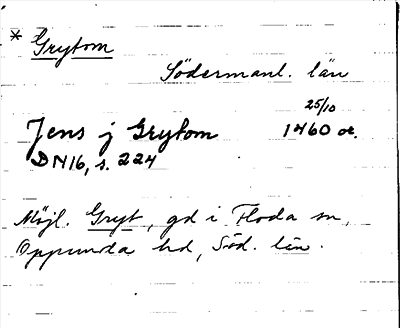 * Grytom
Södermanl. län
25/10
Jens j Grytom 1460 or.
DN16, s. 224
Möjl. Gryt, gd i Floda sn,
Oppunda hd, Söd. län.